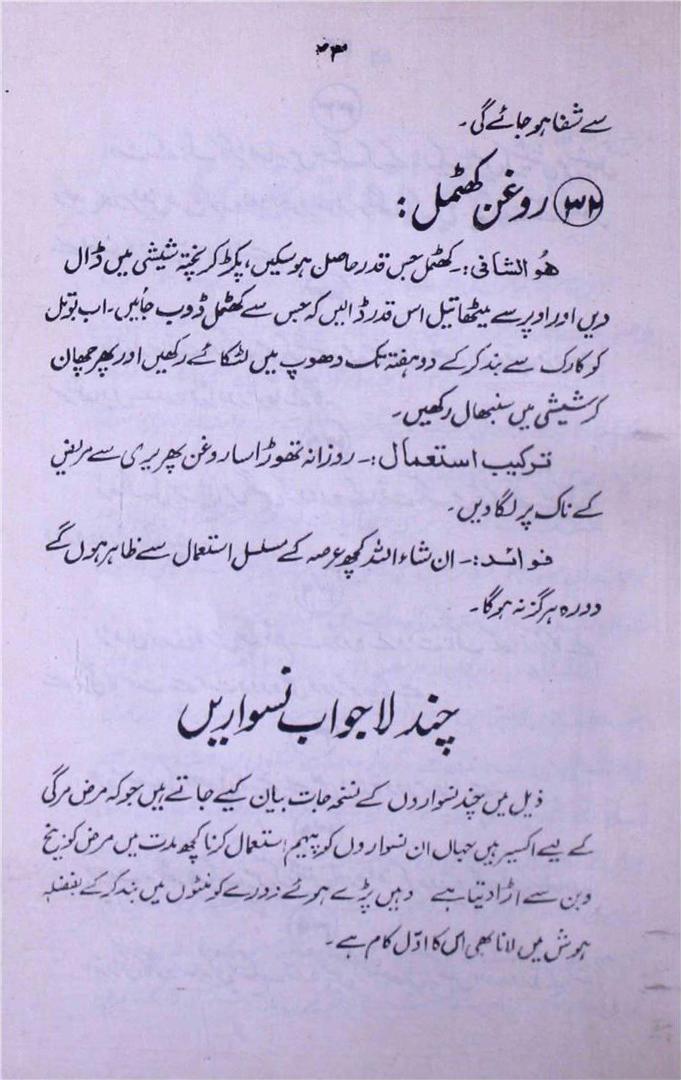 ۴۳
سے شفا ہو جائے گی۔
۳۲ روغن کھٹمل :
ھُوالشافی :۔ کھٹمل جس قدر حاصل ہو سکیں، پکڑ کر پختہ شیشی میں ڈال
دیں اور اوپر سے میٹھا تیل اس قدر ڈالیں کہ جس سے کھٹمل ڈوب جائیں۔ اب بوتل
کو کارک سے بند کر کے دو ہفتہ تک دھوپ میں لٹکائے رکھیں اور پھر چھان
کر شیشی میں سنبھال رکھیں۔
ترکیب استعمال :۔ روزانہ تھوڑا سا روغن پھریری سے مریض
کے ناک پر لگا دیں۔
فوائد :۔ ان شاء اللہ کچھ عرصہ کے مسلسل استعمال سے ظاہر ہوں گے
دورہ ہرگز نہ ہوگا۔
چند لاجواب نسواریں
ذیل میں چند نسواروں کے نسخہ جات بیان کیے جاتے ہیں جو کہ مرض مرگی
کے لیے اکسیر ہیں جہاں ان نسواروں کو پیہم استعمال کرنا کچھ مدت میں مرض کو بیخ
و بن سے اڑا دیتا ہے وہیں پڑے ہوئے دورے کو منٹوں میں بند کر کے بفضلہ
ہوش میں لانا بھی اس کا ادّل کام ہے۔